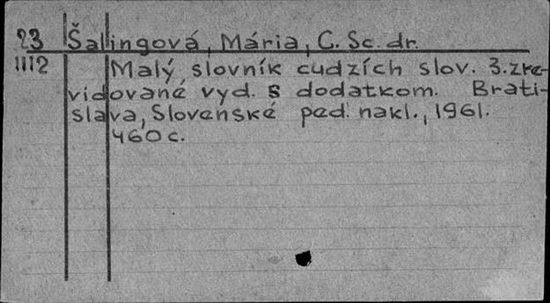 23 Šalingová, Mária, C. Sc. dr.
1112 Malý slovník cudzích slov. 3. zre-
vidované vyd. s dodatkom. Brati-
slava, Slovenské ped. nakl., 1961.
460 c.